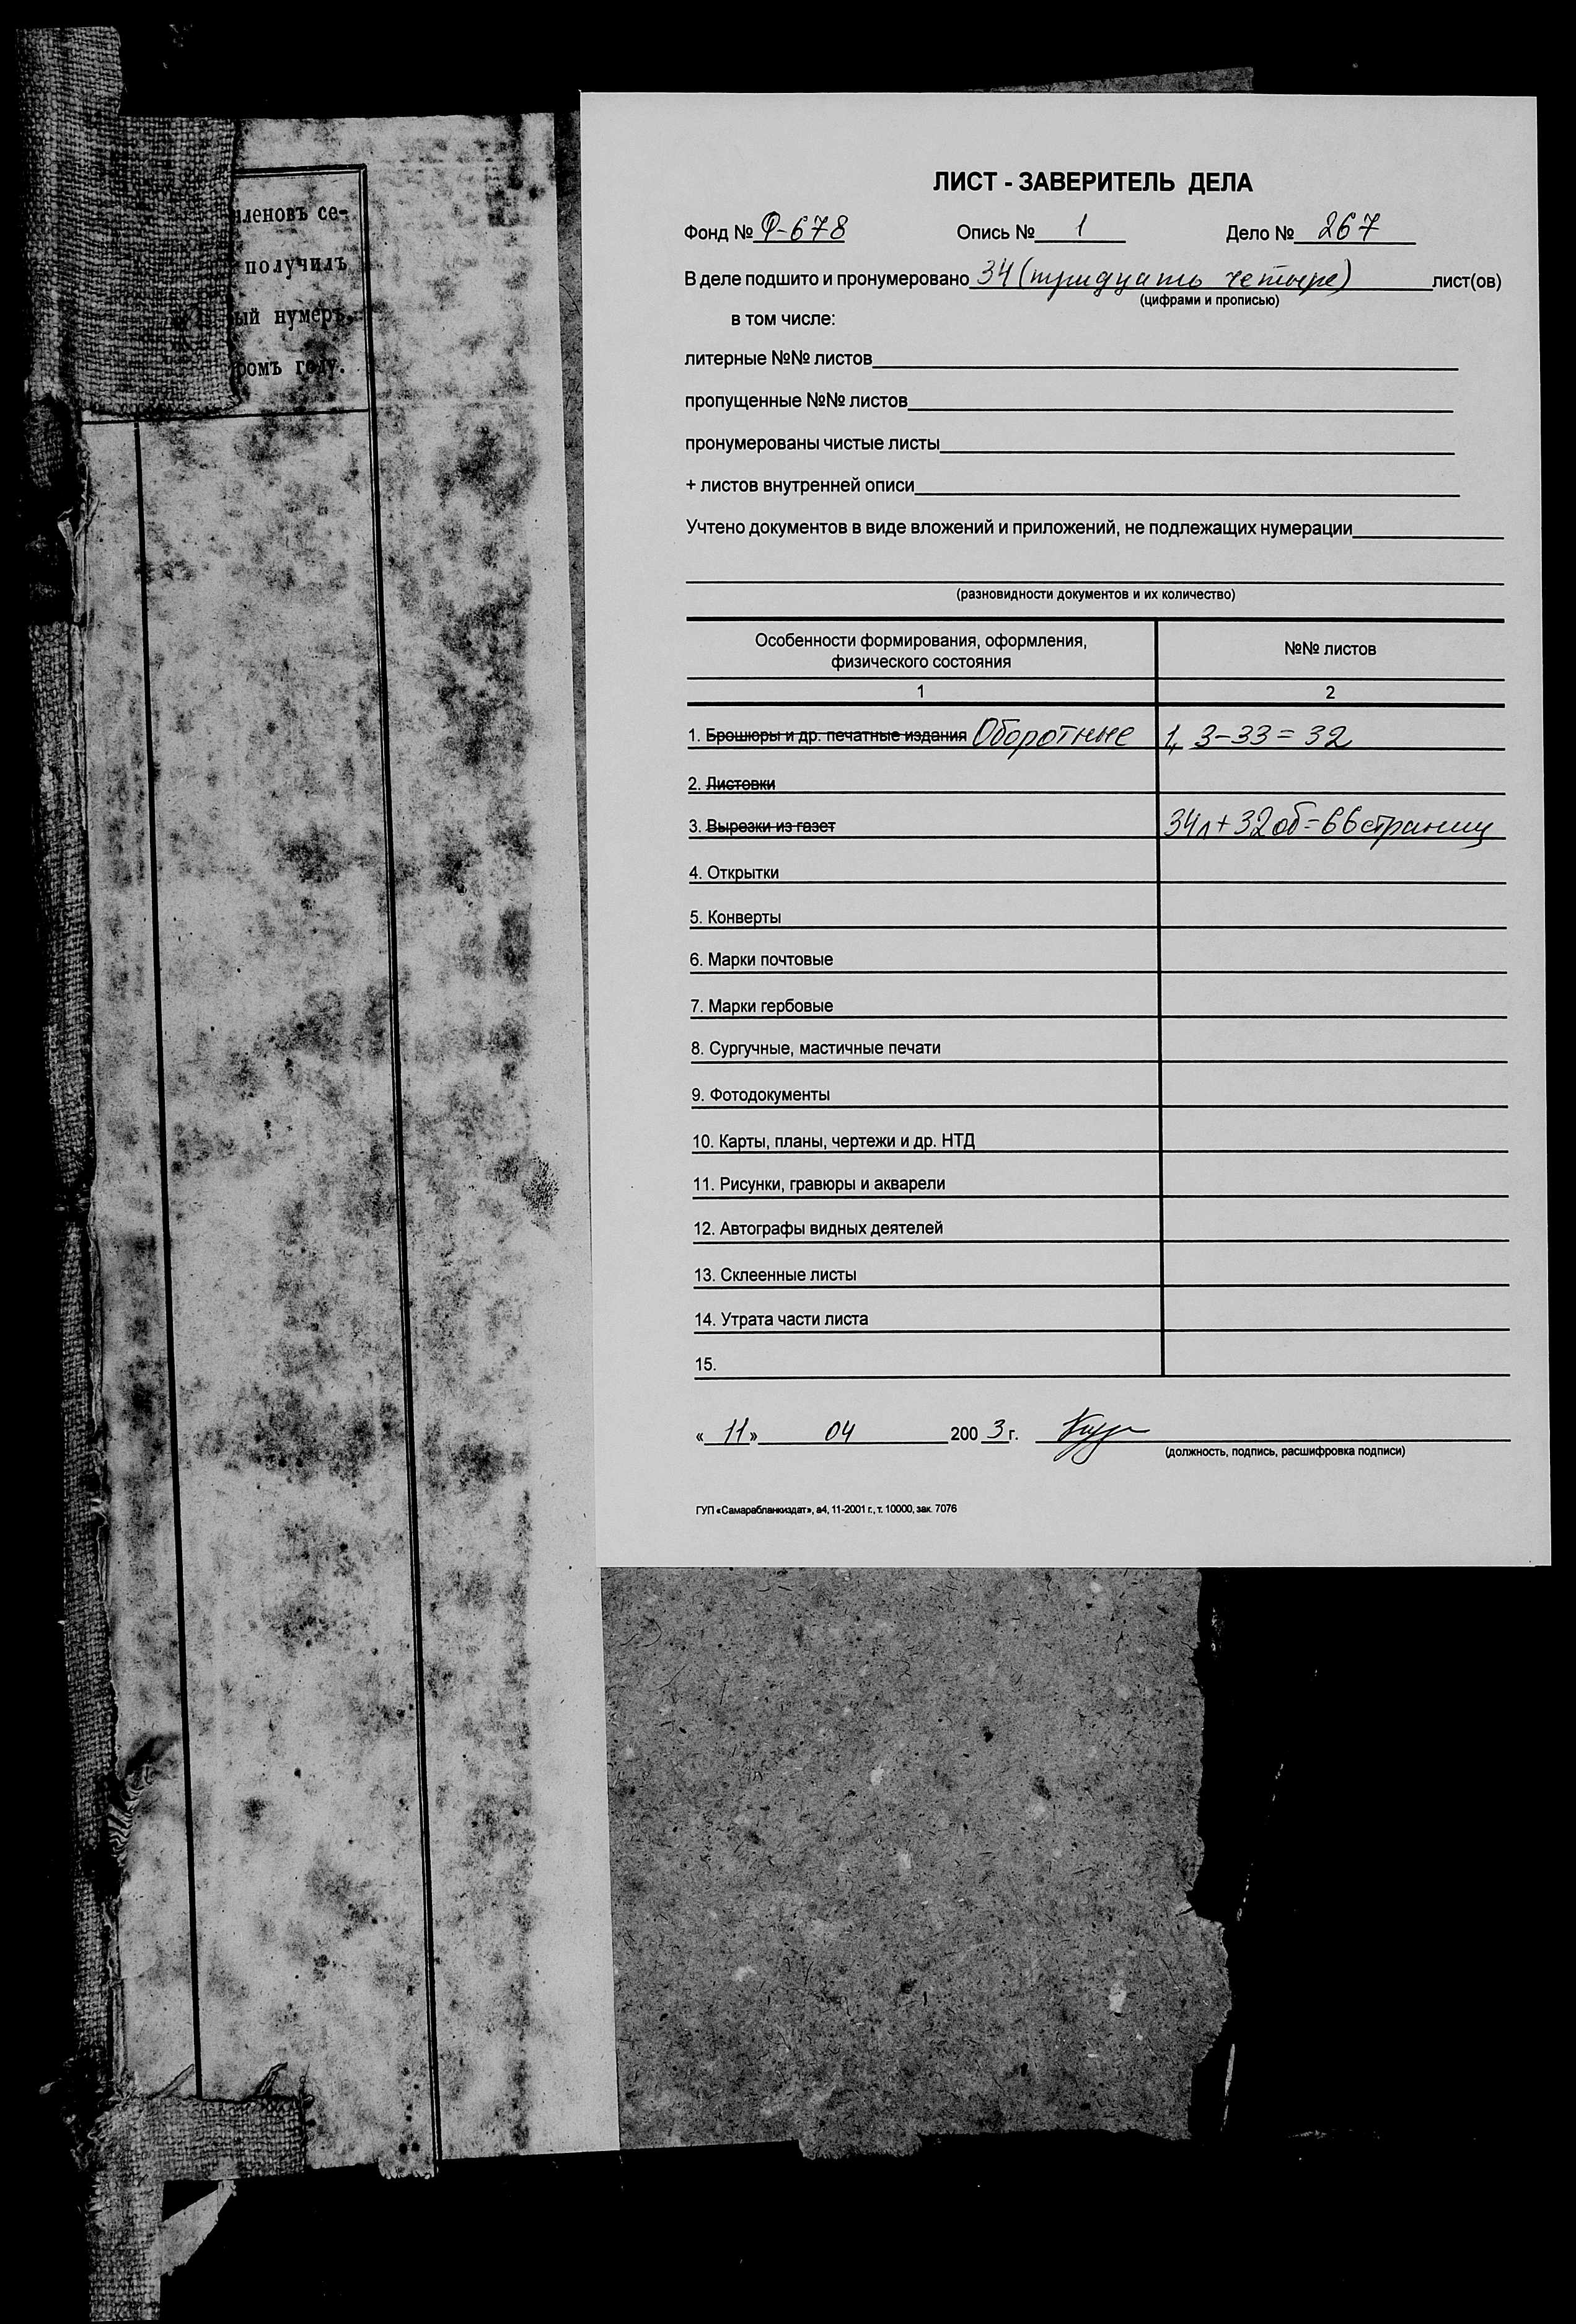 членовъ се-
получилъ
ый нумеръ,
ромъ году.
ЛИСТ - ЗАВЕРИТЕЛЬ ДЕЛА
Фонд № Ф-678 Опись № 1 Дело № 267
В деле подшито и пронумеровано 34 (тридцать четыре) лист(ов)
(цифрами и прописью)
в том числе:
литерные №№ листов
пропущенные №№ листов
пронумерованы чистые листы
+ листов внутренней описи
Учтено документов в виде вложений и приложений, не подлежащих нумерации
(разновидности документов и их количество)
Особенности формирования, оформления, №№ листов
физического состояния
1 2
1. Брошюры и др. печатные издания Оборотные 1, 3-33 = 32
2. Листовки
3. Вырезки из газет 34л + 32об = 66 страниц
4. Открытки
5. Конверты
6. Марки почтовые
7. Марки гербовые
8. Сургучные, мастичные печати
9. Фотодокументы
10. Карты, планы, чертежи и др. НТД
11. Рисунки, гравюры и акварели
12. Автографы видных деятелей
13. Склеенные листы
14. Утрата части листа
15.
« 11 » 04 200 3 г.
(должность, подпись, расшифровка подписи)
ГУП «Самарабланкиздат», а4, 11-2001 г., т. 10000, зак. 7076